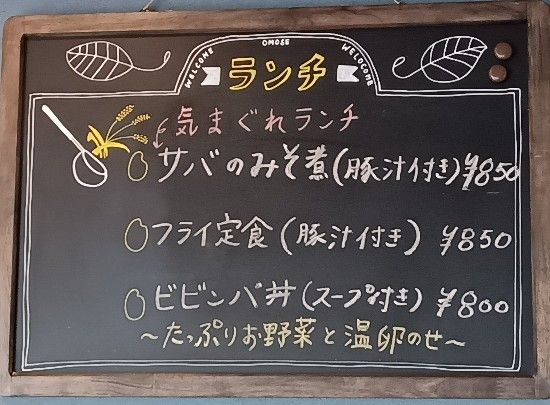 WELCOME OMOSE WELOCOME
ランチ
気まぐれランチ
サバのみそ煮(豚汁付き)¥850
フライ定食(豚汁付き) ¥850
ビビンバ丼(スープ付き) ¥800
～たっぷりお野菜と温卵のせ～